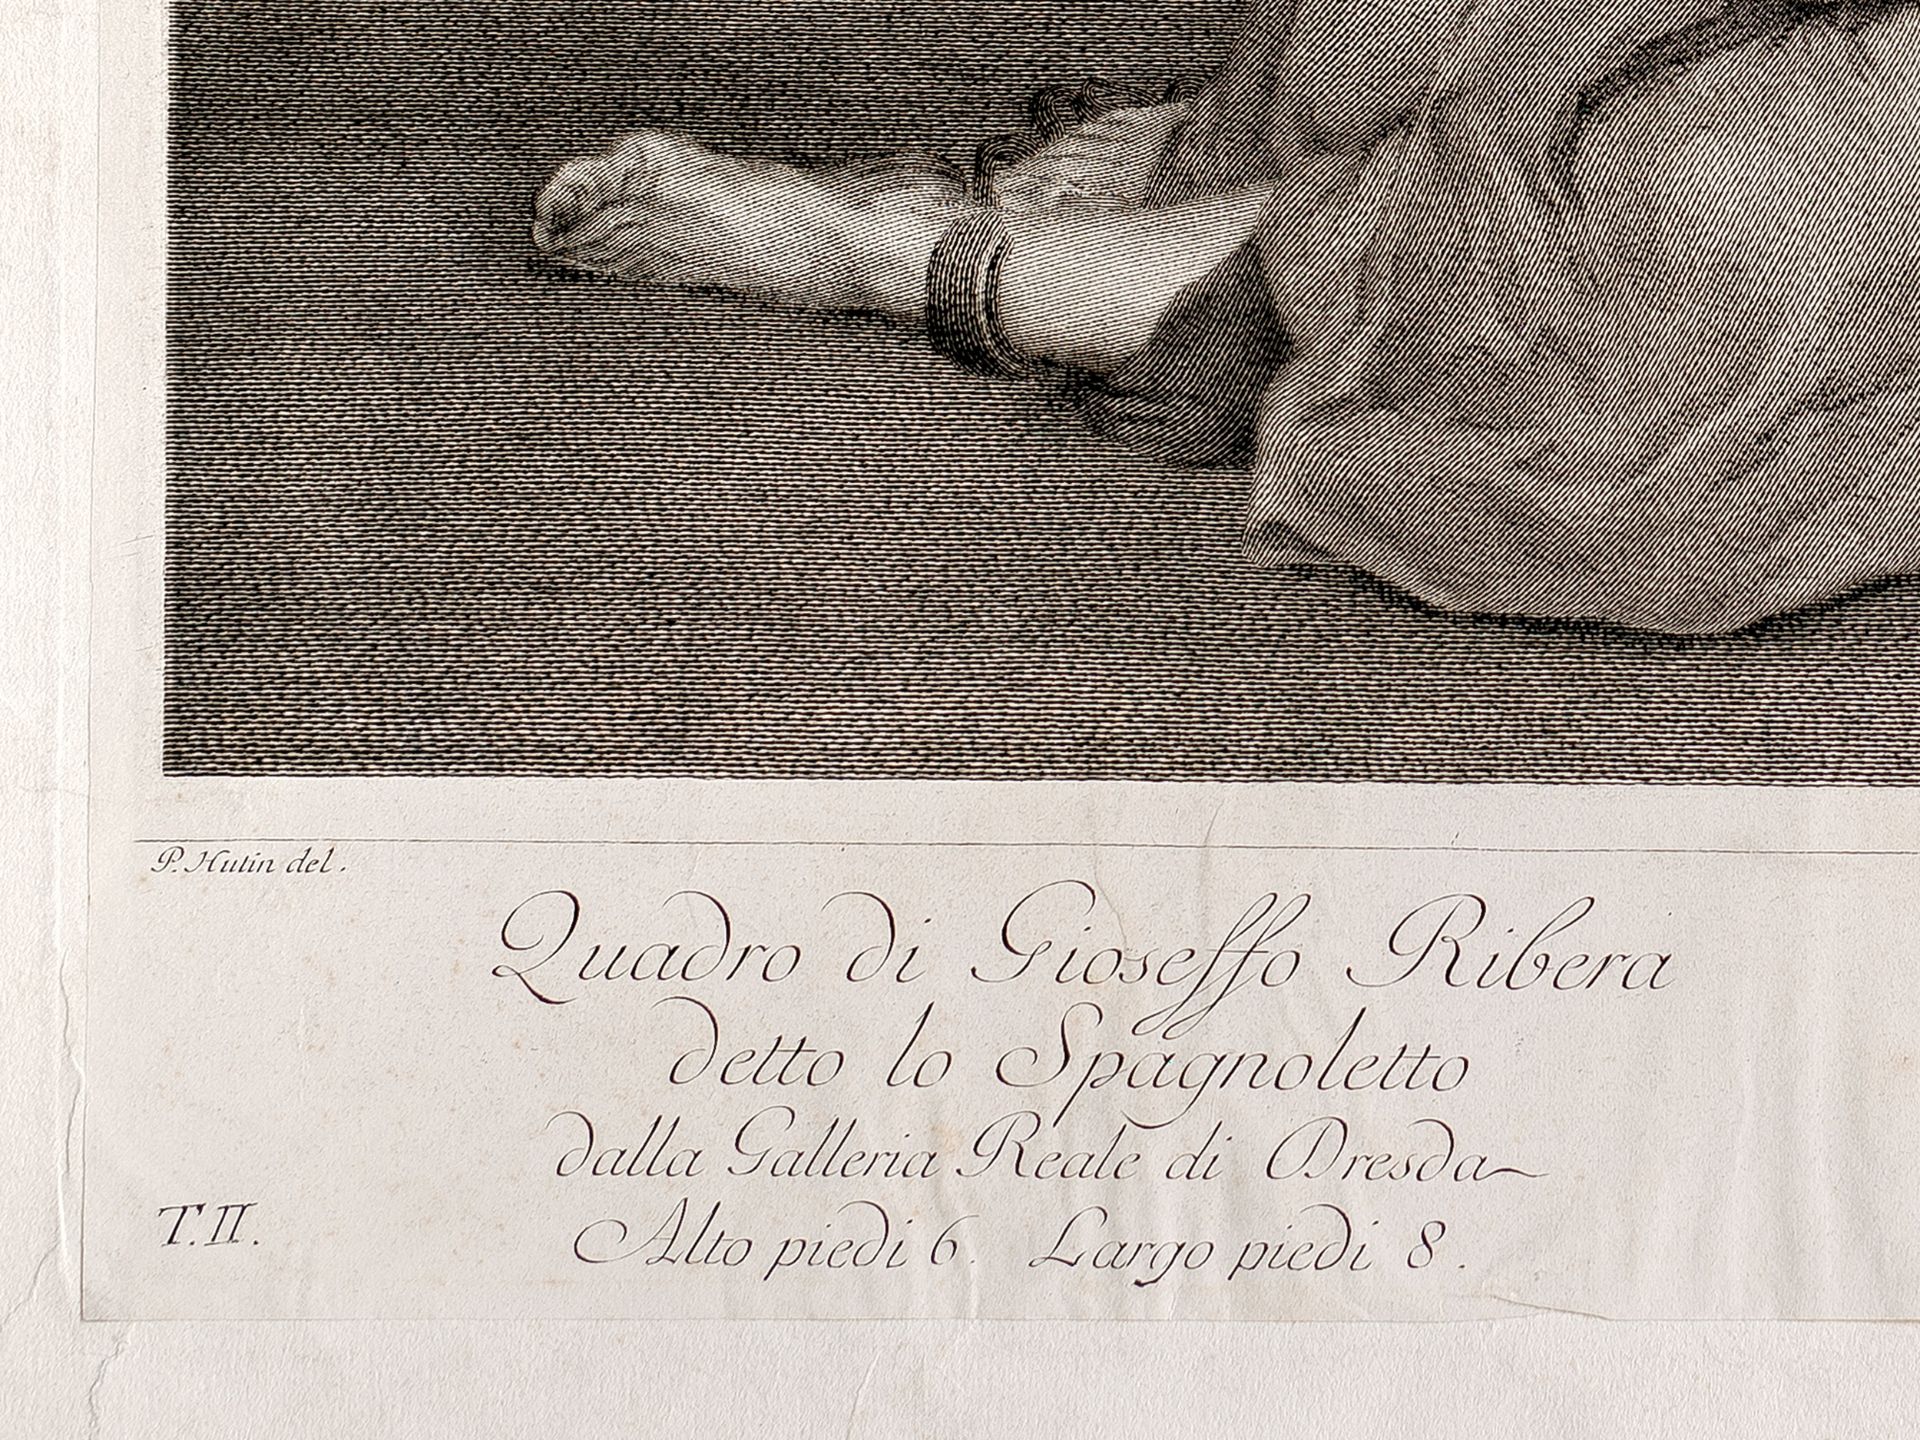 P. Hutin del.
Quadro di Gioseffo Ribera
detto lo Spagnoletto
dalla Galleria Reale di Dresda
T. II.
Alto piedi 6. Largo piedi 8.